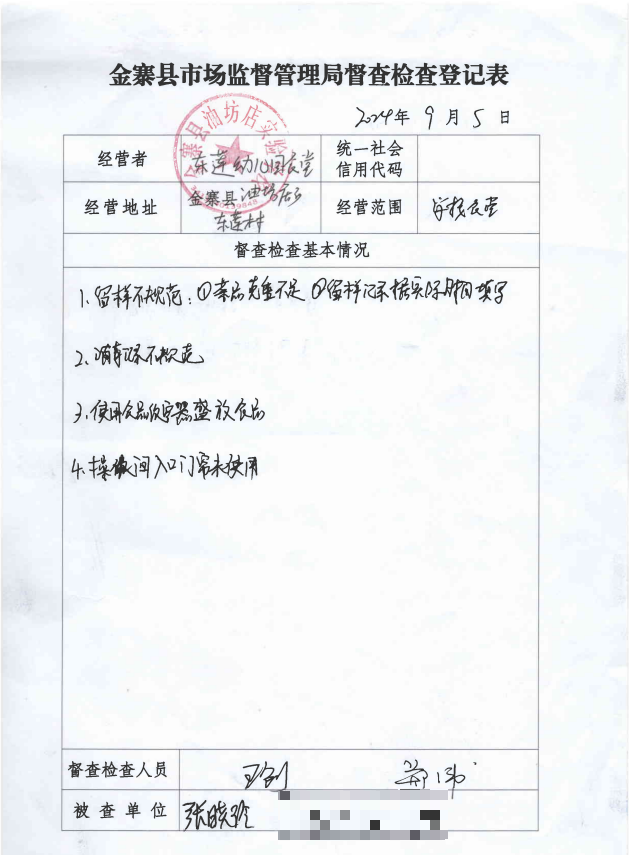 金寨县市场监督管理局督查检查登记表
2024年 9 月 5 日
经营者 东莲幼儿园食堂 统一社会信用代码
经营地址 金寨县油坊店乡东莲村 经营范围 学校食堂
金寨县油坊店实验
督查检查基本情况
1、留样不规范：①菜品克重不足 ②留样记录 实际时间填写
2、消毒记录不规范
3、使用 容器盛放食品
4、操作间入口门帘未使用
督查检查人员
被查单位 张晓玲